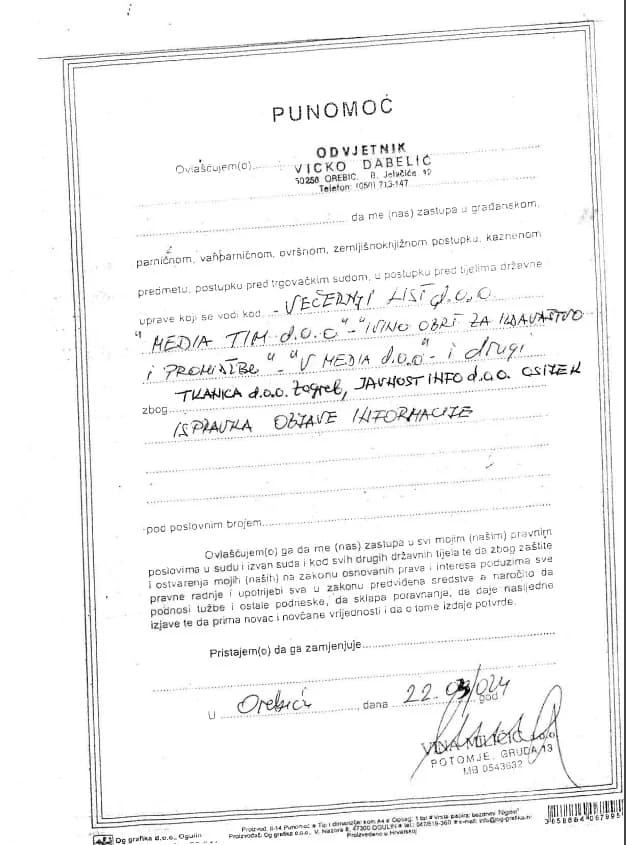 PUNOMOĆ
Ovlašćujem(o)
ODVJETNIK
VICKO DABELIĆ
50250 OREBIĆ, B. Jelačića 12
Telefon: (050) 713-147
da me (nas) zastupa u građanskom,
parničnom, vanparničnom, ovršnom, zemljišnoknjižnom postupku, kaznenom
predmetu, postupku pred trgovačkim sudom, u postupku pred tijelima državne
uprave koji se vodi kod - VEČERNJI LIST d.o.o
"MEDIA TIM d.o.o" - "IVINO OBRT ZA IZDAVAŠTVO
I PROMIDŽBE" - "V MEDIA d.o.o" - i drugi
TKANICA d.o.o. Zagreb, JAVNOST INFO d.o.o. OSIJEK
zbog
ISPRAVKA OBJAVE INFORMACIJE
pod poslovnim brojem
Ovlašćujem(o) ga da me (nas) zastupa u svi mojim (našim) pravnim
poslovima u sudu i izvan suda i kod svih drugih državnih tijela te da zbog zaštite
i ostvarenja mojih (naših) na zakonu osnovanih prava i interesa poduzima sve
pravne radnje i upotrijebi sva u zakonu predviđena sredstva a naročito da
podnosi tužbe i ostale podneske, da sklapa poravnanja, da daje nasljedne
izjave te da prima novac i novčane vrijednosti i da o tome izdaje potvrde.
Pristajem(o) da ga zamjenjuje
U Orebiću, dana 22.03/024 god
VINA MILIČIĆ d.o.o.
POTOMJE, GRUDA 13
MB 0543632
Og grafika d.o.o., Ogulin
Proizvod: II-14 Punomoć
Proizvođač: Og grafika d.o.o., V. Nazora 8, 47300 OGULIN
Proizvedeno u Hrvatskoj